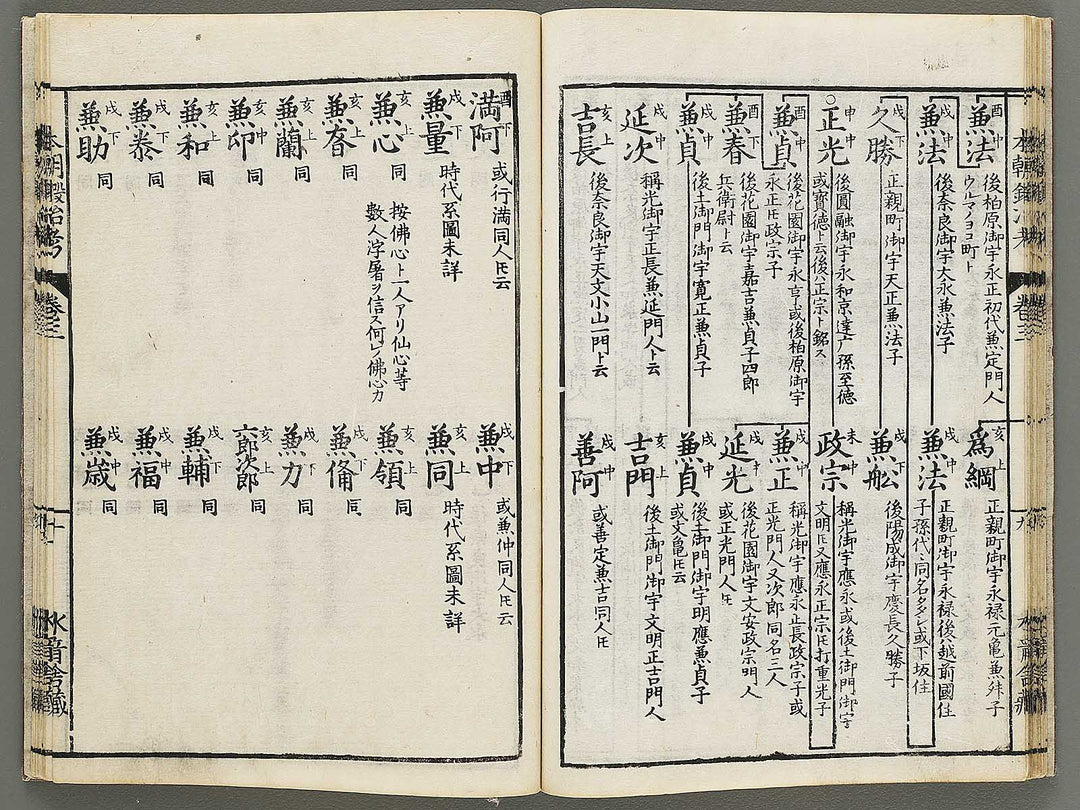 戌中 兼法 後柏原御宇永正初代兼定門人
ウルマノヨコ町ト
戌中 兼法 後奈良御宇大永兼法子
戌下 久勝 正親町御宇天正兼法子
○申中 正光 後圓融御宇永和京達广孫至徳
或寳徳ト云後ハ正宗ト銘ス
酉中 兼貞 後花園御宇永享或後柏原御宇
永正𪜈政宗子
酉下 兼春 後花園御宇嘉吉兼貞子四郎
兵衛尉ト云
戌中 兼貞 後土御門御宇寛正兼貞子
戌中 延次 稱光御宇正長兼延門人ト云
亥上 吉長 後奈良御宇天文小山一門ト云
亥上 爲綱 正親町御宇永禄元亀兼舛子
戌中 兼法 正親町御宇永禄後ハ越前國住
子孫代〻同名多シ或下坂住
戌下 兼舩 後陽成御宇慶長久勝子
未中 政宗 稱光御宇應永或後土御門御宇
文明𪜈又應永正宗𪜈打重光子
戌中 兼正 稱光御宇應永正長政宗子或
正光門人又次郎同名三人
戌中 延光 後花園御宇文安政宗門人
或正光門人𪜈
戌中 兼貞 後土御門御宇明應兼貞子
或文亀𪜈云
亥上 吉門 後土御門御宇文明正吉門人
戌中 善阿 或善定兼吉同人𪜈
卷三
九
酉下 満阿 或行満同人𪜈云
戌下 兼量 時代系圖未詳
亥上 兼心 同 按佛心ト一人アリ仙心等
數人浮屠ヲ信ス何レ佛心カ
亥上 兼舂 同
亥上 兼蘭 同
亥中 兼卯 同
亥上 兼和 同
戌下 兼泰 同
戌下 兼助 同
戌下 兼中 或兼仲同人𪜈云
亥上 兼同 時代系圖未詳
亥上 兼領 同
戌下 兼脩 同
戌下 兼力 同
亥上 六郎次郎 同
戌下 兼輔 同
戌中 兼福 同
戌中 兼歳 同
本朝鍛冶考 卷三
十
水音舎藏